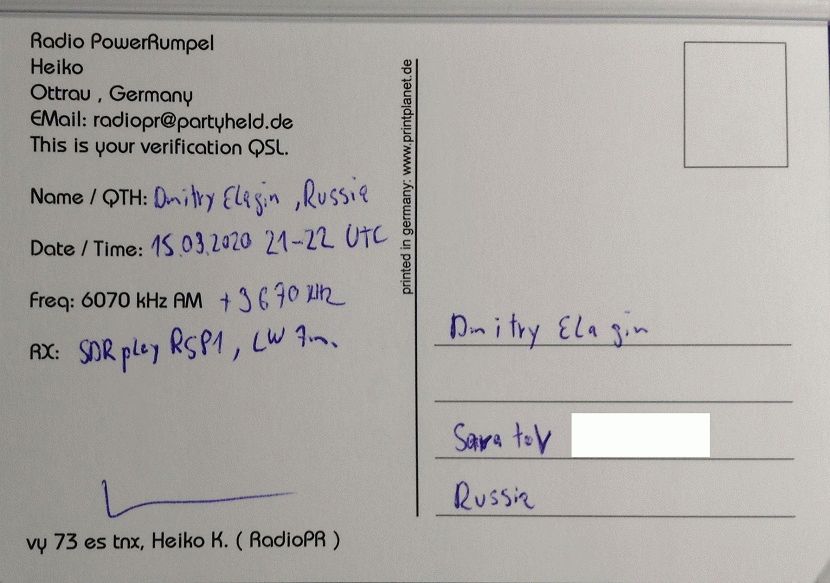 Radio PowerRumpel
Heiko
Ottrau , Germany
EMail: radiopr@partyheld.de
This is your verification QSL.
Name / QTH: Dmitry Elagin , Russia
Date / Time: 15.03.2020 21-22 UTC
Freq: 6070 kHz AM + 3670 kHz
RX: SDR play RSP1, LW 7m.
vy 73 es tnx, Heiko K. ( RadioPR )
printed in germany: www.printplanet.de
Dmitry Elagin
Saratov
Russia